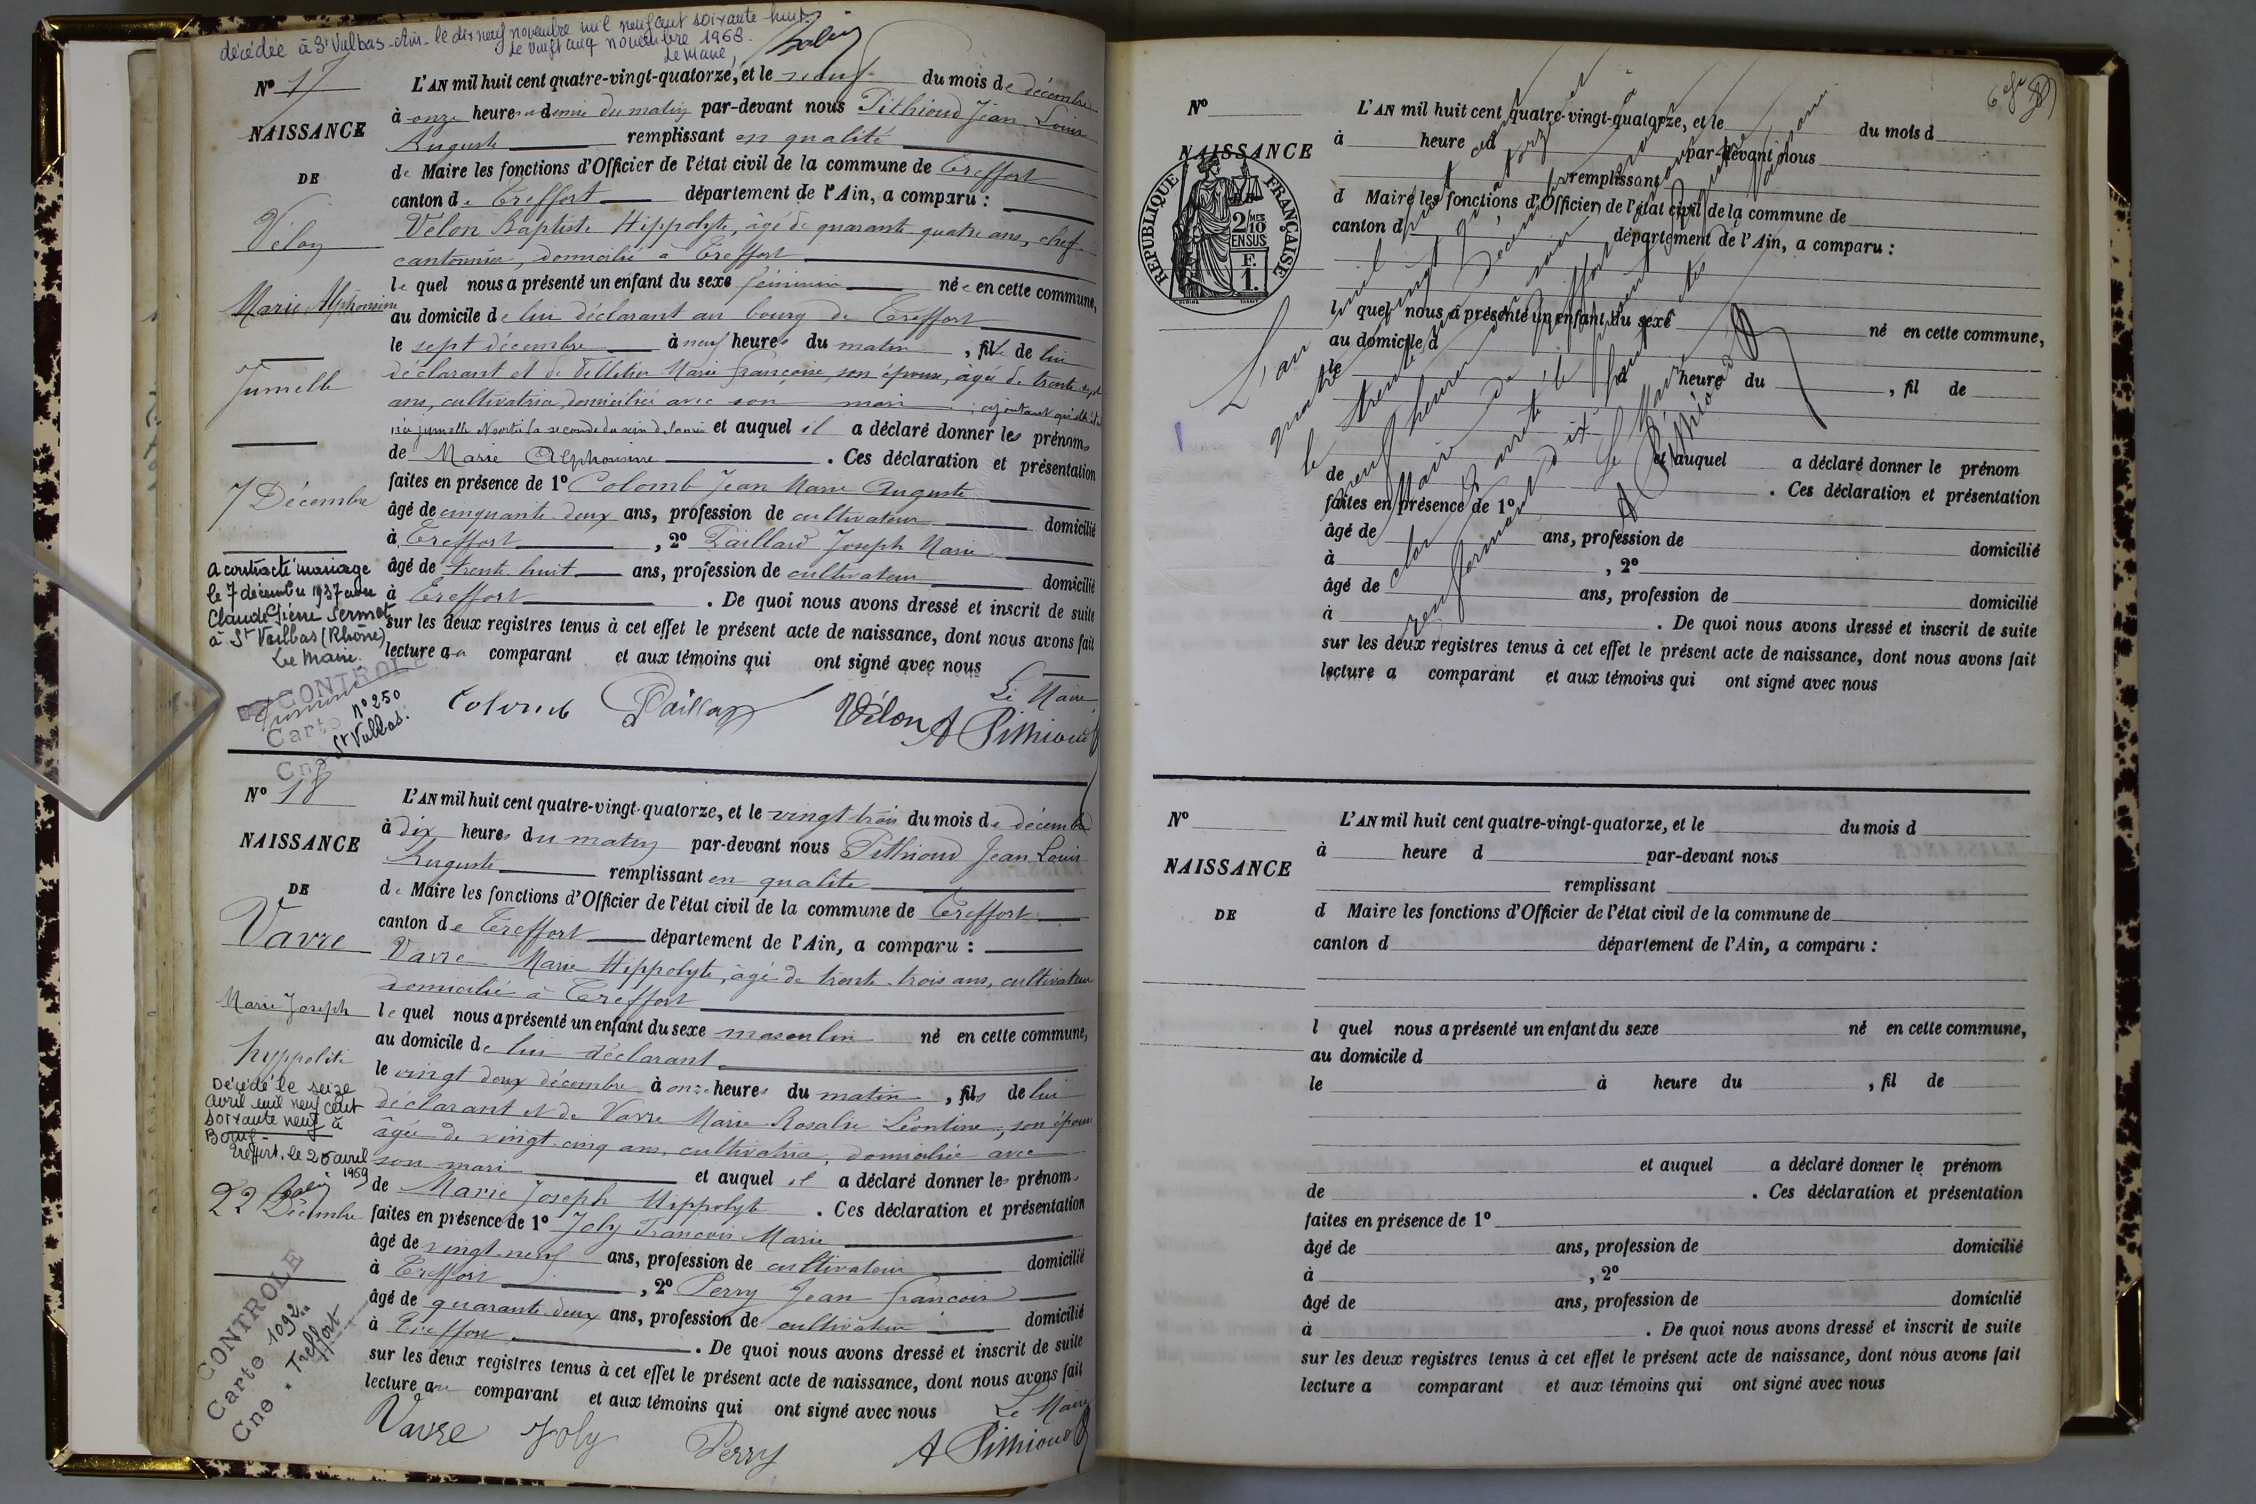 décédée à St Vulbas - Ain - le dix neuf novembre mil neuf cent soixante-huit.
Le vingt cinq novembre 1968.
Le Maire,
N° 17
NAISSANCE
DE
Vélon
Marie Alphonsine
Jumelle
7 Décembre
a contracté mariage
le 7 décembre 1937 avec
Claude Pierre Sermet
à St Vulbas (Rhône)
Le Maire.
CONTROLE
Carte n° 250
Cne St Vulbas.
L'AN mil huit cent quatre-vingt-quatorze, et le neuf du mois de décembre
à onze heures et demie du matin par-devant nous Pithioud Jean Louis
Auguste remplissant en qualité
de Maire les fonctions d'Officier de l'état civil de la commune de Treffort
canton de Treffort département de l'Ain, a comparu :
Vélon Baptiste Hippolyte, âgé de quarante quatre ans, chef
cantonnier, domicilié à Treffort
lequel nous a présenté un enfant du sexe féminin née en cette commune,
au domicile de lui déclarant au bourg de Treffort
le sept décembre à neuf heures du matin, fille de lui
déclarant et de Pelletier Marie Françoise, son épouse, âgée de trente sept
ans, cultivatrice, domiciliée avec son mari ; ajoutant qu'elle est
née jumelle et sortie la seconde du sein de sa mère et auquel il a déclaré donner les prénoms
de Marie Alphonsine. Ces déclaration et présentation
faites en présence de 1° Colomb Jean Marie Auguste
âgé de cinquante deux ans, profession de cultivateur domicilié
à Treffort, 2° Paillard Joseph Marie
âgé de trente huit ans, profession de cultivateur domicilié
à Treffort. De quoi nous avons dressé et inscrit de suite
sur les deux registres tenus à cet effet le présent acte de naissance, dont nous avons fait
lecture au comparant et aux témoins qui ont signé avec nous
Le Maire
Colomb Paillard Vélon A Pithioud
N° 18
NAISSANCE
DE
Vavre
Marie Joseph
hyppolite
Décédé le seize
avril mil neuf cent
soixante neuf à
Bourg
Treffort, le 25 avril
1969
22 Décembre
CONTROLE
Carte 1092
Cne . Treffort
L'AN mil huit cent quatre-vingt-quatorze, et le vingt trois du mois de décembre
à dix heures du matin par-devant nous Pithioud Jean Louis
Auguste remplissant en qualité
de Maire les fonctions d'Officier de l'état civil de la commune de Treffort
canton de Treffort département de l'Ain, a comparu :
Vavre Marie Hippolyte, âgé de trente trois ans, cultivateur
domicilié à Treffort
lequel nous a présenté un enfant du sexe masculin né en cette commune,
au domicile de lui déclarant
le vingt deux décembre à onze heures du matin, fils de lui
déclarant et de Vavre Marie Rosalie Léontine, son épouse
âgée de vingt cinq ans, cultivatrice, domiciliée avec
son mari et auquel il a déclaré donner les prénoms
de Marie Joseph Hippolyte. Ces déclaration et présentation
faites en présence de 1° Joly François Marie
âgé de vingt neuf ans, profession de cultivateur domicilié
à Treffort, 2° Perry Jean François
âgé de quarante deux ans, profession de cultivateur domicilié
à Treffort. De quoi nous avons dressé et inscrit de suite
sur les deux registres tenus à cet effet le présent acte de naissance, dont nous avons fait
lecture au comparant et aux témoins qui ont signé avec nous
Le Maire
Vavre Joly Perry A Pithioud
N°
NAISSANCE
REPUBLIQUE FRANÇAISE
2/10 MES
EN SUS
F.
1.
L'AN mil huit cent quatre-vingt-quatorze, et le du mois d
à heure d par-devant nous
remplissant
d Maire les fonctions d'Officier de l'état civil de la commune de
canton d département de l'Ain, a comparu :
l quel nous a présenté un enfant du sexe né en cette commune,
au domicile d
le à heure du , fil de
et auquel a déclaré donner le prénom
de . Ces déclaration et présentation
faites en présence de 1°
âgé de ans, profession de domicilié
à , 2°
âgé de ans, profession de domicilié
à . De quoi nous avons dressé et inscrit de suite
sur les deux registres tenus à cet effet le présent acte de naissance, dont nous avons fait
lecture a comparant et aux témoins qui ont signé avec nous
L'an mil huit cent
quatre vingt quatorze et
le trente un Décembre à
neuf heures du soir, nous
Maire de Treffort avons
clos et arrêté le présent Registre
renfermant dix huit actes
Le Maire
A Pithioud
N°
NAISSANCE
DE
L'AN mil huit cent quatre-vingt-quatorze, et le du mois d
à heure d par-devant nous
remplissant
d Maire les fonctions d'Officier de l'état civil de la commune de
canton d département de l'Ain, a comparu :
l quel nous a présenté un enfant du sexe né en cette commune,
au domicile d
le à heure du , fil de
et auquel a déclaré donner le prénom
de . Ces déclaration et présentation
faites en présence de 1°
âgé de ans, profession de domicilié
à , 2°
âgé de ans, profession de domicilié
à . De quoi nous avons dressé et inscrit de suite
sur les deux registres tenus à cet effet le présent acte de naissance, dont nous avons fait
lecture a comparant et aux témoins qui ont signé avec nous